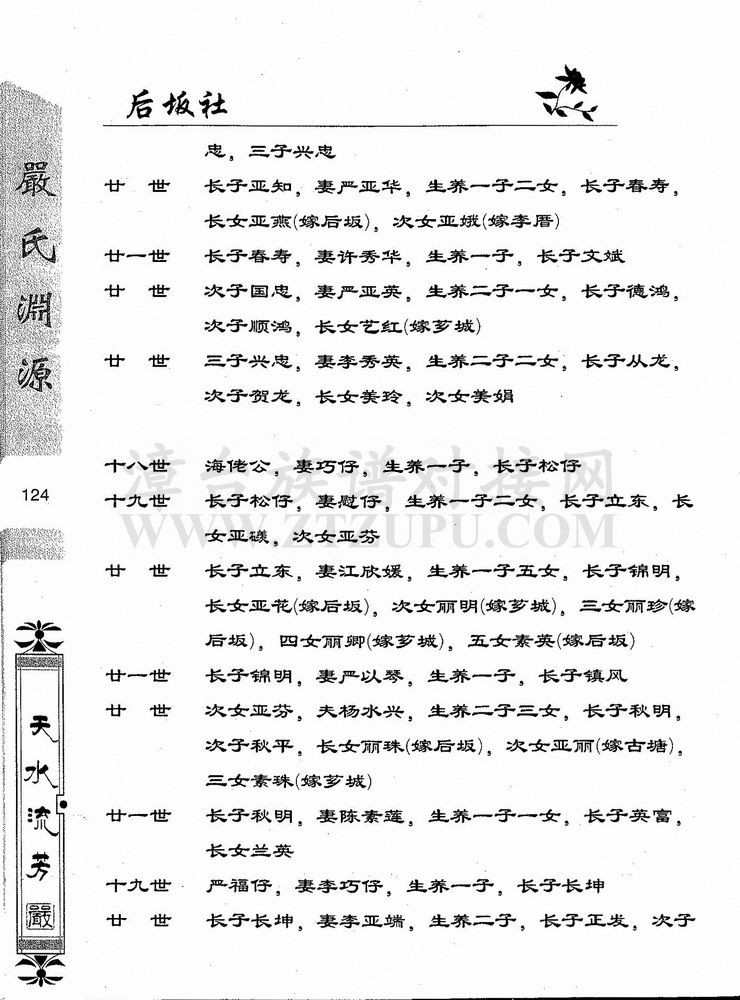 后坂社
忠，三子兴忠
廿　世　长子亚知，妻严亚华，生养一子二女，长子春寿，
长女亚燕(嫁后坂)，次女亚娥(嫁李厝)
廿一世　长子春寿，妻许秀华，生养一子，长子文斌
廿　世　次子国忠，妻严亚英，生养二子一女，长子德鸿，
次子顺鸿，长女艺红(嫁芗城)
廿　世　三子兴忠，妻李秀英，生养二子二女，长子从龙，
次子贺龙，长女美玲，次女美娟
十八世　海佬公，妻巧仔，生养一子，长子松仔
十九世　长子松仔，妻慰仔，生养一子二女，长子立东，长
女亚碤，次女亚芬
廿　世　长子立东，妻江欣媛，生养一子五女，长子锦明，
长女亚花(嫁后坂)，次女丽明(嫁芗城)，三女丽珍(嫁
后坂)，四女丽卿(嫁芗城)，五女素英(嫁后坂)
廿一世　长子锦明，妻严以琴，生养一子，长子镇风
廿　世　次女亚芬，夫杨水兴，生养二子三女，长子秋明，
次子秋平，长女丽珠(嫁后坂)，次女亚丽(嫁古塘)，
三女素珠(嫁芗城)
廿一世　长子秋明，妻陈素莲，生养一子一女，长子英富，
长女兰英
十九世　严福仔，妻李巧仔，生养一子，长子长坤
廿　世　长子长坤，妻李亚端，生养二子，长子正发，次子
嚴氏淵源
124
天水流芳
嚴
漳台族谱对接网
WWW.ZTZUPU.COM